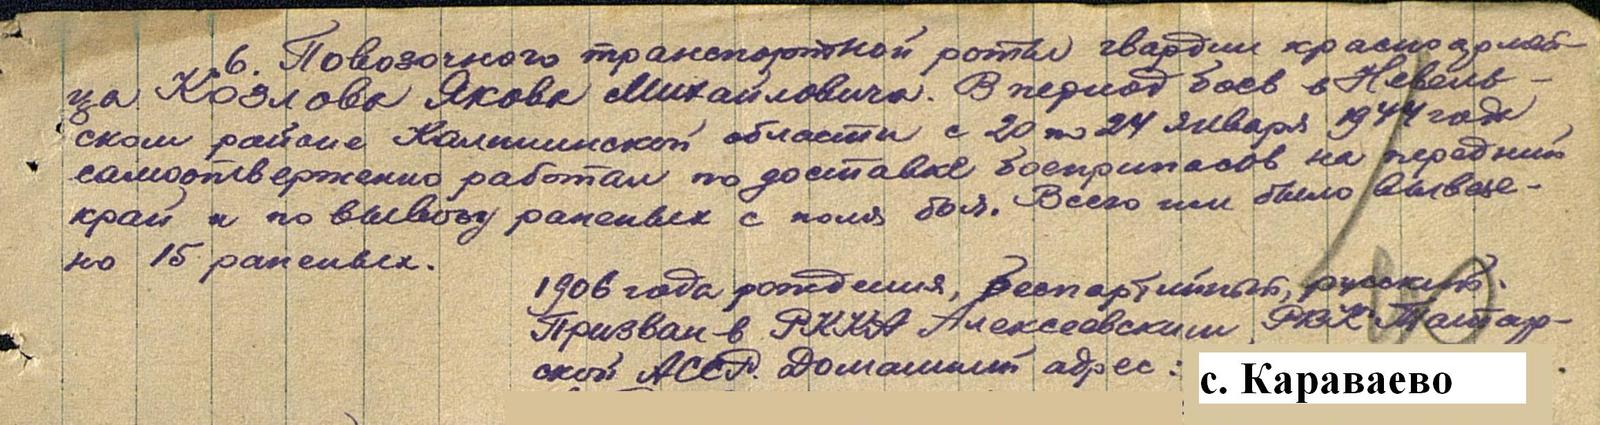 6. Повозочного транспортной роты гвардии красноармей-
ца Козлова Якова Михайловича. В период боев в Невель-
ском районе Калининской области с 20 по 24 января 1944 года
самоотверженно работал по доставке боеприпасов на передний
край и по вывозу раненых с поля боя. Всего им было вывезе-
но 15 раненых.
1906 года рождения, беспартийный, русский.
Призван в РККА Алексеевским РВК Татар-
ской АССР. Домашний адрес:
с. Караваево